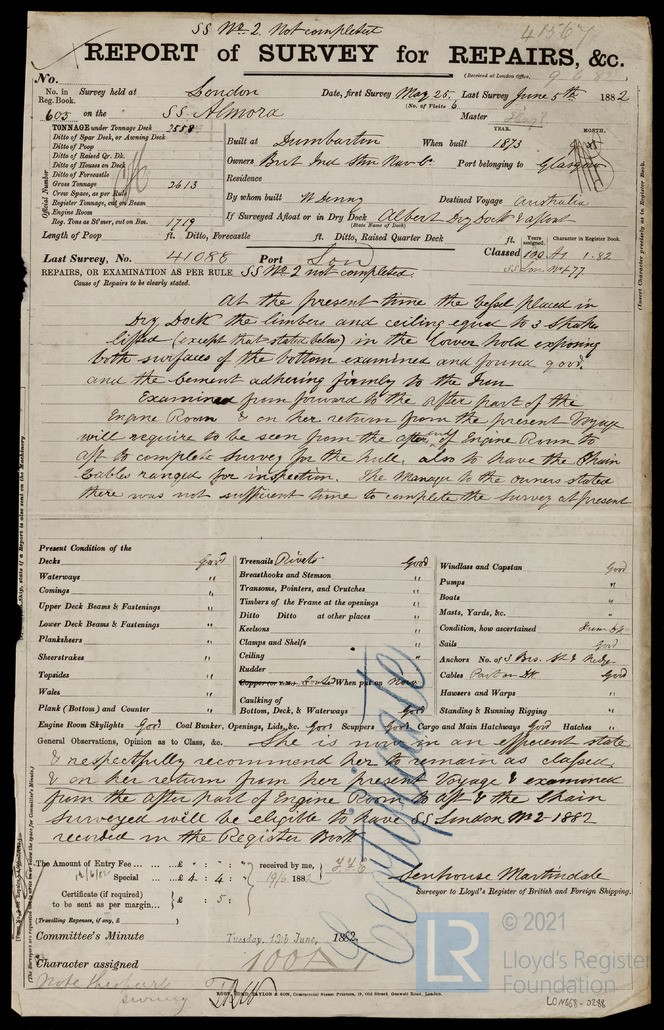 SS No. 2 Not completed
41567
REPORT of SURVEY for REPAIRS, &c.
No.
(Received at London Office, 9 6 82)
No. in Reg. Book. Survey held at London Date, first Survey May 25. Last Survey June 5th 1882
(No. of Visits 6
605 on the SS Almora Master
TONNAGE under Tonnage Deck 2558
Ditto of Spar Deck, or Awning Deck
Ditto of Poop
Ditto of Raised Qr. Dk.
Ditto of Houses on Deck
Ditto of Forecastle
Gross Tonnage 2613
Crew Space, as per Rule
Register Tonnage, cut on Beam
Engine Room
Reg. Tons as St'mer, cut on Bm. 1719
Official Number
YEAR. MONTH.
Built at Dumbarton When built 1873
Owners Brit Ind Stm Nav Co Port belonging to Glasgow
Residence
By whom built W Denny Destined Voyage Australia
If Surveyed Afloat or in Dry Dock Albert Dry Dock & afloat
(State Name of Dock)
Length of Poop ft. Ditto, Forecastle ft. Ditto, Raised Quarter Deck ft.
Years assigned. Character in Register Book.
Last Survey, No. 41088 Port Lon Classed 100 A1 1.82
SS Lon. No 4 77
REPAIRS, OR EXAMINATION AS PER RULE SS No 2 not completed.
Cause of Repairs to be clearly stated.
At the present time the Vessel placed in
Dry Dock the limbers and ceiling equal to 3 Strakes
lifted (except that stated below) in the lower hold exposing
both surfaces of the bottom examined and found good.
and the Cement adhering firmly to the Iron
Examined from forward to the after part of the
Engine Room & on her return from the present Voyage
will require to be seen from the after end of Engine Room to
aft to complete Survey for the hull, also to have the Chain
Cables ranged for inspection. The Manager to the owners stated
there was not sufficient time to complete the Survey at present
Present Condition of the
Decks Good
Waterways "
Comings "
Upper Deck Beams & Fastenings "
Lower Deck Beams & Fastenings "
Planksheers "
Sheerstrakes "
Topsides "
Wales "
Plank (Bottom) and Counter "
Treenails Rivets Good
Breasthooks and Stemson "
Transoms, Pointers, and Crutches "
Timbers of the Frame at the openings "
Ditto Ditto at other places "
Keelsons "
Clamps and Shelfs "
Ceiling "
Rudder "
Copper or Y.M. Coated When put on Now
Caulking of Bottom, Deck, & Waterways Good
Windlass and Capstan Good
Pumps "
Boats "
Masts, Yards, &c. "
Condition, how ascertained
Sails Good
Anchors No. of 3 Brs. St & Kedge "
Cables Part on Dk Good
Hawsers and Warps "
Standing & Running Rigging "
Engine Room Skylights Good Coal Bunker, Openings, Lids, &c. Good Scuppers Good Cargo and Main Hatchways Good Hatches "
General Observations, Opinion as to Class, &c. She is now in an efficient state
& respectfully recommend her to remain as classed,
& on her return from her present Voyage & examined
from the After part of Engine Room to aft & the Chain
Surveyed will be eligible to have SS London No 2 1882
recorded in the Register Book
Certificate
The Amount of Entry Fee ... £ : :
Special ... £ 4 : 4 :
received by me,
19/6 1882
Certificate (if required) to be sent as per margin... £ : 5 :
(Travelling Expenses, if any, £ )
Senhouse Martindale
Surveyor to Lloyd's Register of British and Foreign Shipping.
Committee's Minute Tuesday, 13th June, 1882.
Character assigned 100A1
Note the part
survey
ROBT. BOND, TAYLOR & SON, Commercial Steam Printers, 19, Old Street, Goswell Road, London.
© 2021
LR
Lloyd's Register
Foundation
LON668-0288